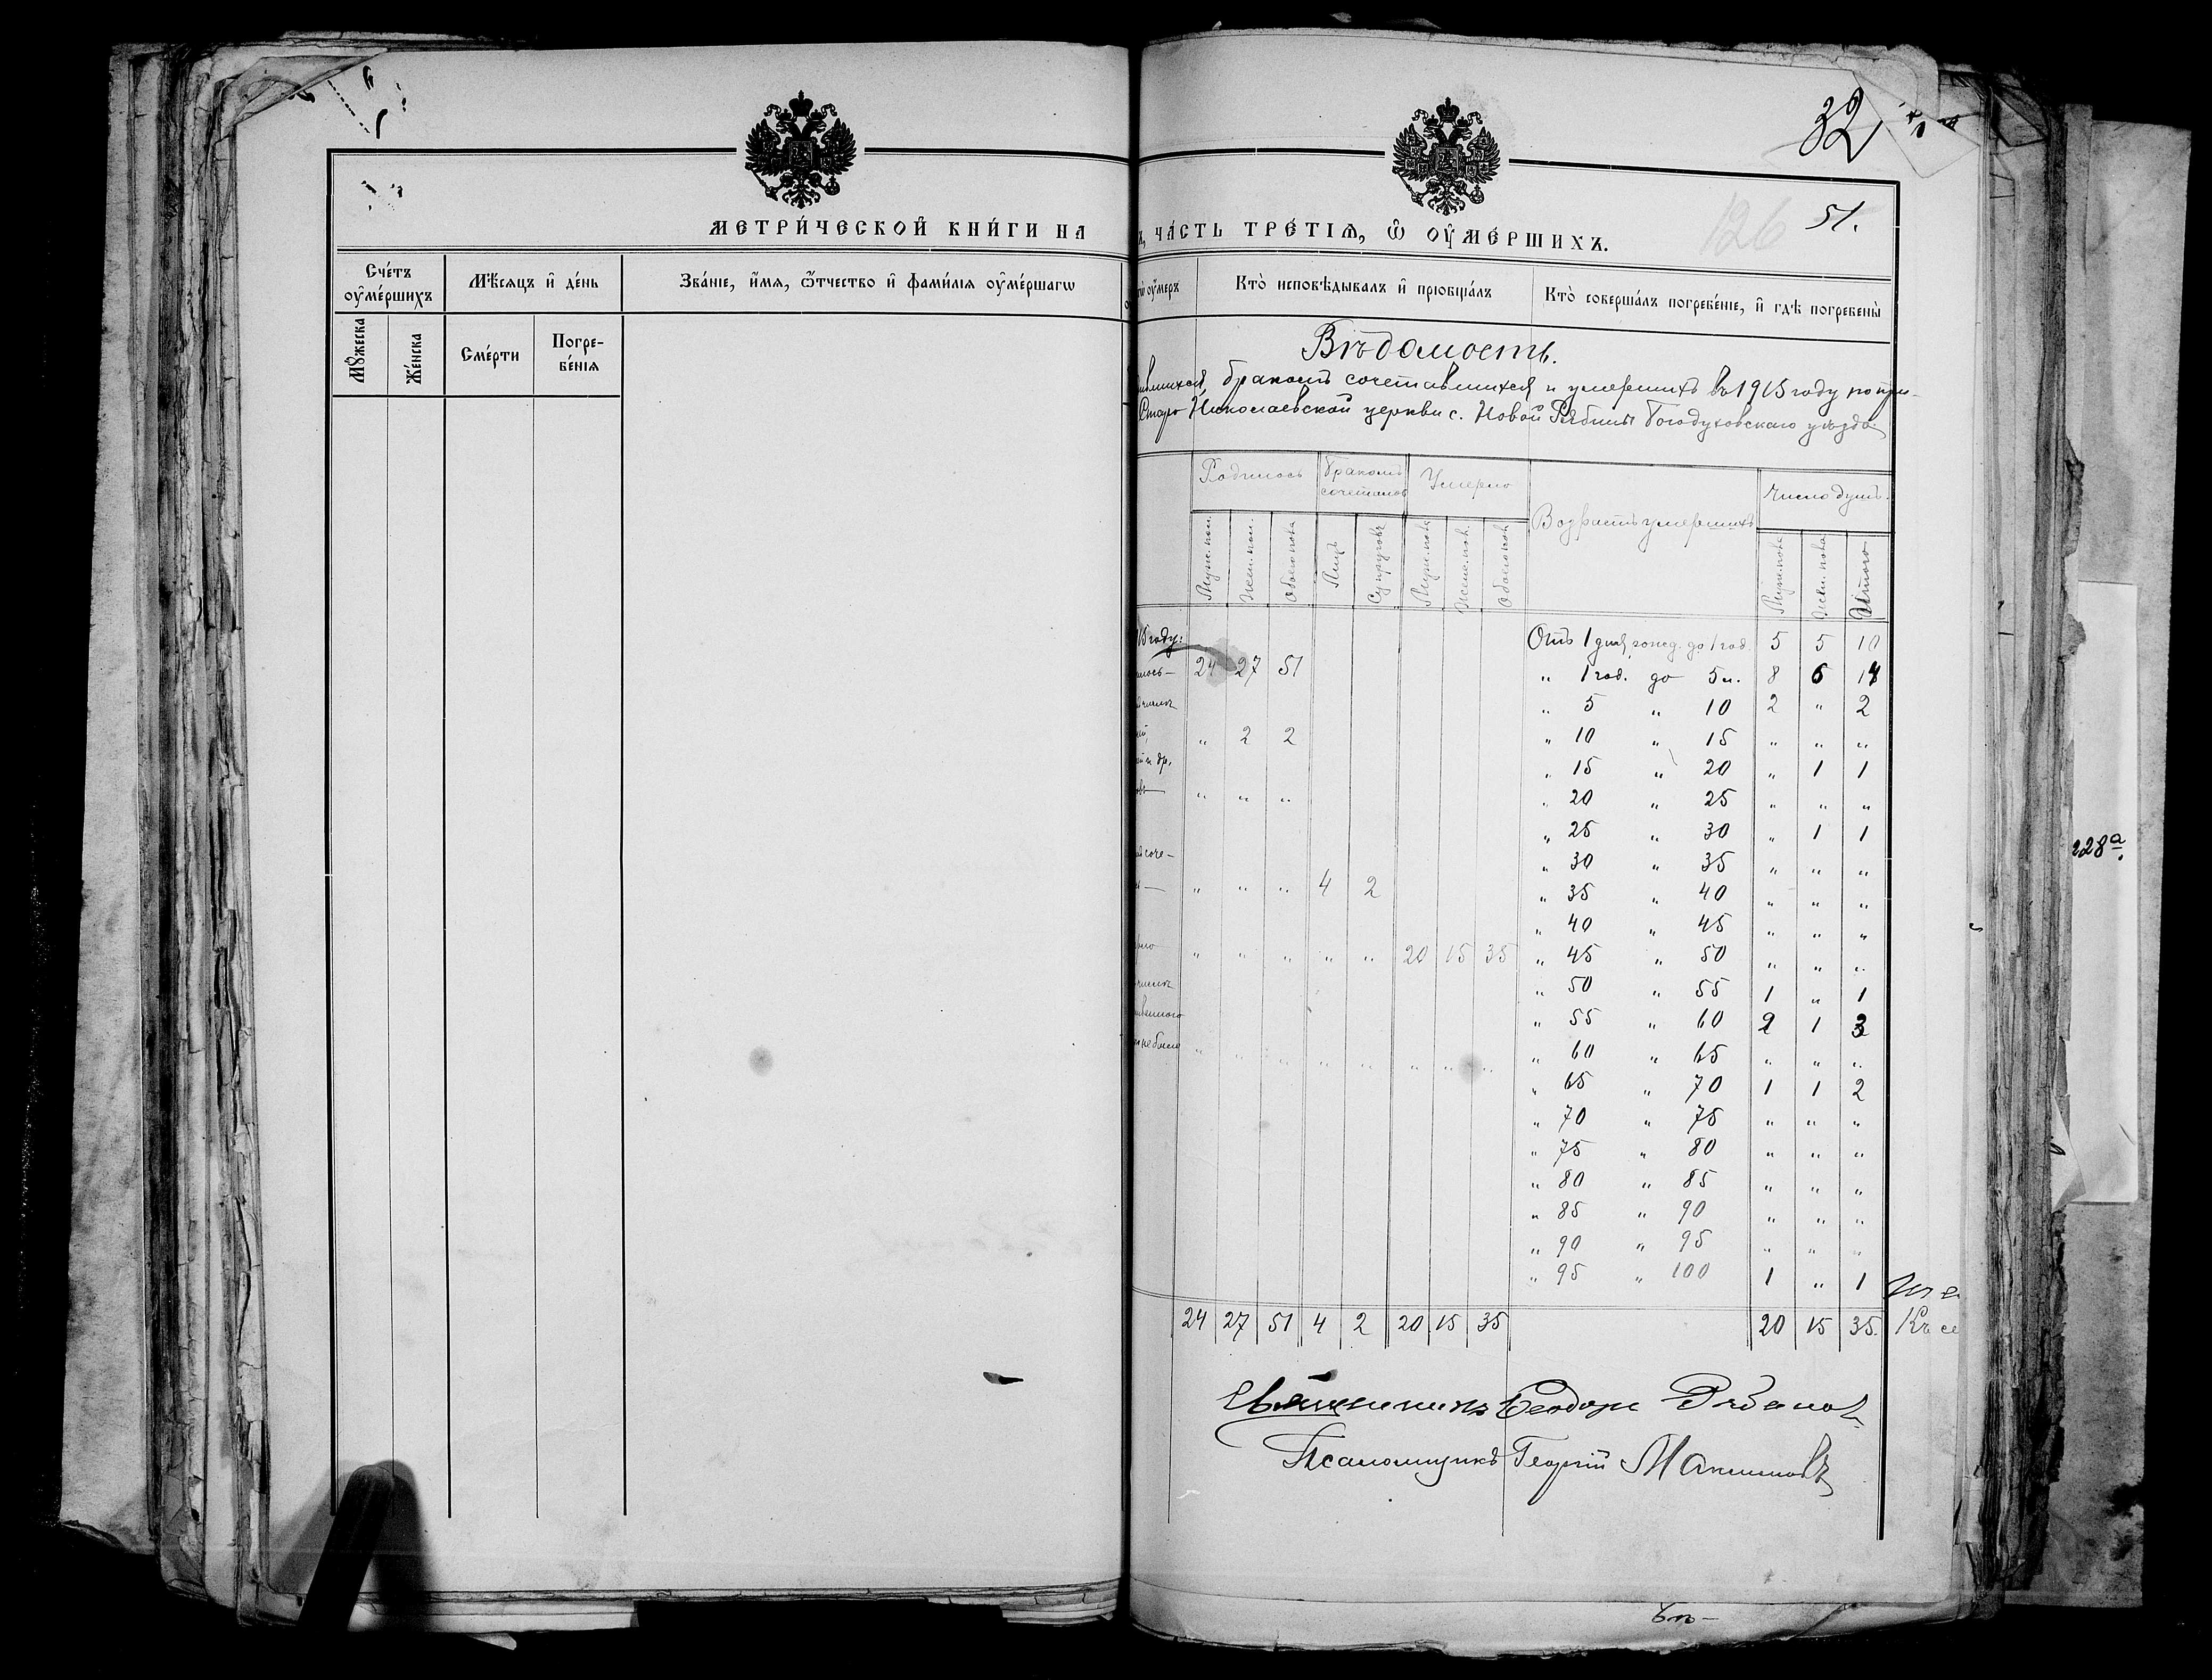 МЕТРИ́ЧЕСКОЙ КНИ́ГИ НА
Сче́тъ оу҆ме́ршихъ
Мѣ́сяцъ и҆ де́нь
Зва́ніе, и҆́мѧ, ѻ҆́тчество и҆ фами́лїѧ оу҆ме́ршагѡ
Мꙋ́жеска
Же́нска
Сме́рти
Погре-
бе́нїѧ
32
126
51.
ЧА́СТЬ ТРЕ́ТІѦ, Ѡ҆ ОУ҆МЕ́РШИХЪ.
оу҆́меръ
Кто̀ исповѣ́дывалъ и҆ прїобща́лъ
Кто̀ соверша́лъ погребе́нїе, и҆ гдѣ̀ погребены̀
Вѣдомость.
бракомъ сочетавшихся и умершихъ въ 1915 году по при-
Старо Николаевской церкви с. Новой Рябины Богодуховскаго уѣзда
Родилось
Бракомъ
сочеталось
Умерло
Возрастъ умершихъ
Число душъ.
Муж. пол.
Жен. пол.
Обоего пола
Лицъ
Супруговъ
Муж. пола
Жен. пола
Обоего пола
Муж. пола
Жен. пола
Итого
15 году:
Отъ 1 дня рожд. до 1 год. 5 5 10
24 27 51
" 1 год. до 5 л. 8 6 14
" 5 " 10 2 " 2
" 2 2
" 10 " 15 " " "
" 15 " 20 " 1 1
" " "
" 20 " 25 " " "
" 25 " 30 " 1 1
соче-
" 30 " 35 " " "
" " " 4 2
" 35 " 40 " " "
" 40 " 45 " " "
" " " " " 20 15 35
" 45 " 50 " " "
" 50 " 55 1 " 1
" 55 " 60 2 1 3
" " " " " " " "
" 60 " 65 " " "
" 65 " 70 1 1 2
" 70 " 75 " " "
" 75 " 80 " " "
" 80 " 85 " " "
" 85 " 90 " " "
" 90 " 95 " " "
" 95 " 100 1 " 1
24 27 51 4 2 20 15 35 20 15 35.
Къ се
Священникъ Ѳеодоръ
Псаломщикъ Георгій Максимовъ
228а.